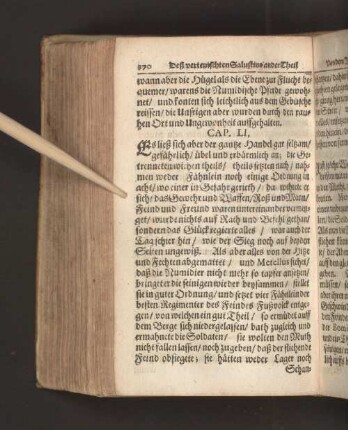 270 Deß verteutschten Salustius ander Theil
wann aber die Hügel als die Ebene zur Flucht be-
quemer / warens die Numidische Pferde gewoh-
net / und konten sich leichtlich aus dem Gebüsche
reissen / die Unsrigen aber wurden durch den rau-
hen Ort und Ungewonheit auffgehalten.
CAP. LI.
Es ließ sich aber der gantze Handel gar seltzam /
gefährlich / übel und erbärmlich an; die Ge-
trennete wichen theils / theils setzten nach / nah-
men weder Fähnlein noch einige Ordnung in
acht / wo einer in Gefahr gerieth / da wehrete er
sich / das Gewehr und Waffen / Roß und Mann /
Feind und Freund waren untereinander vermen-
get / wurde nichts auf Rath und Befehl gethan /
sondern das Glück regierte alles / war auch der
Tag schier hin / wie der Sieg noch auf beyden
Seiten ungewiß. Als aber alles von der Hitz
und Fechten abgemattet / und Metellus sihet /
daß die Numidier nicht mehr so tapfer ansetzen /
bringet er die seinigen wieder beysammen / stellet
sie in guter Ordnung / und setzet vier Fähnlein der
besten Regimenter des Feindes Fußvolck entge-
gen / von welchen ein gut Theil / so ermüdet auf
dem Berge sich niedergelassen / bath zugleich und
ermahnete die Soldaten / sie wolten den Muth
nicht fallen lassen / noch zugeben / daß der fliehende
Feind obsiegete; sie hätten weder Lager noch
Schan-